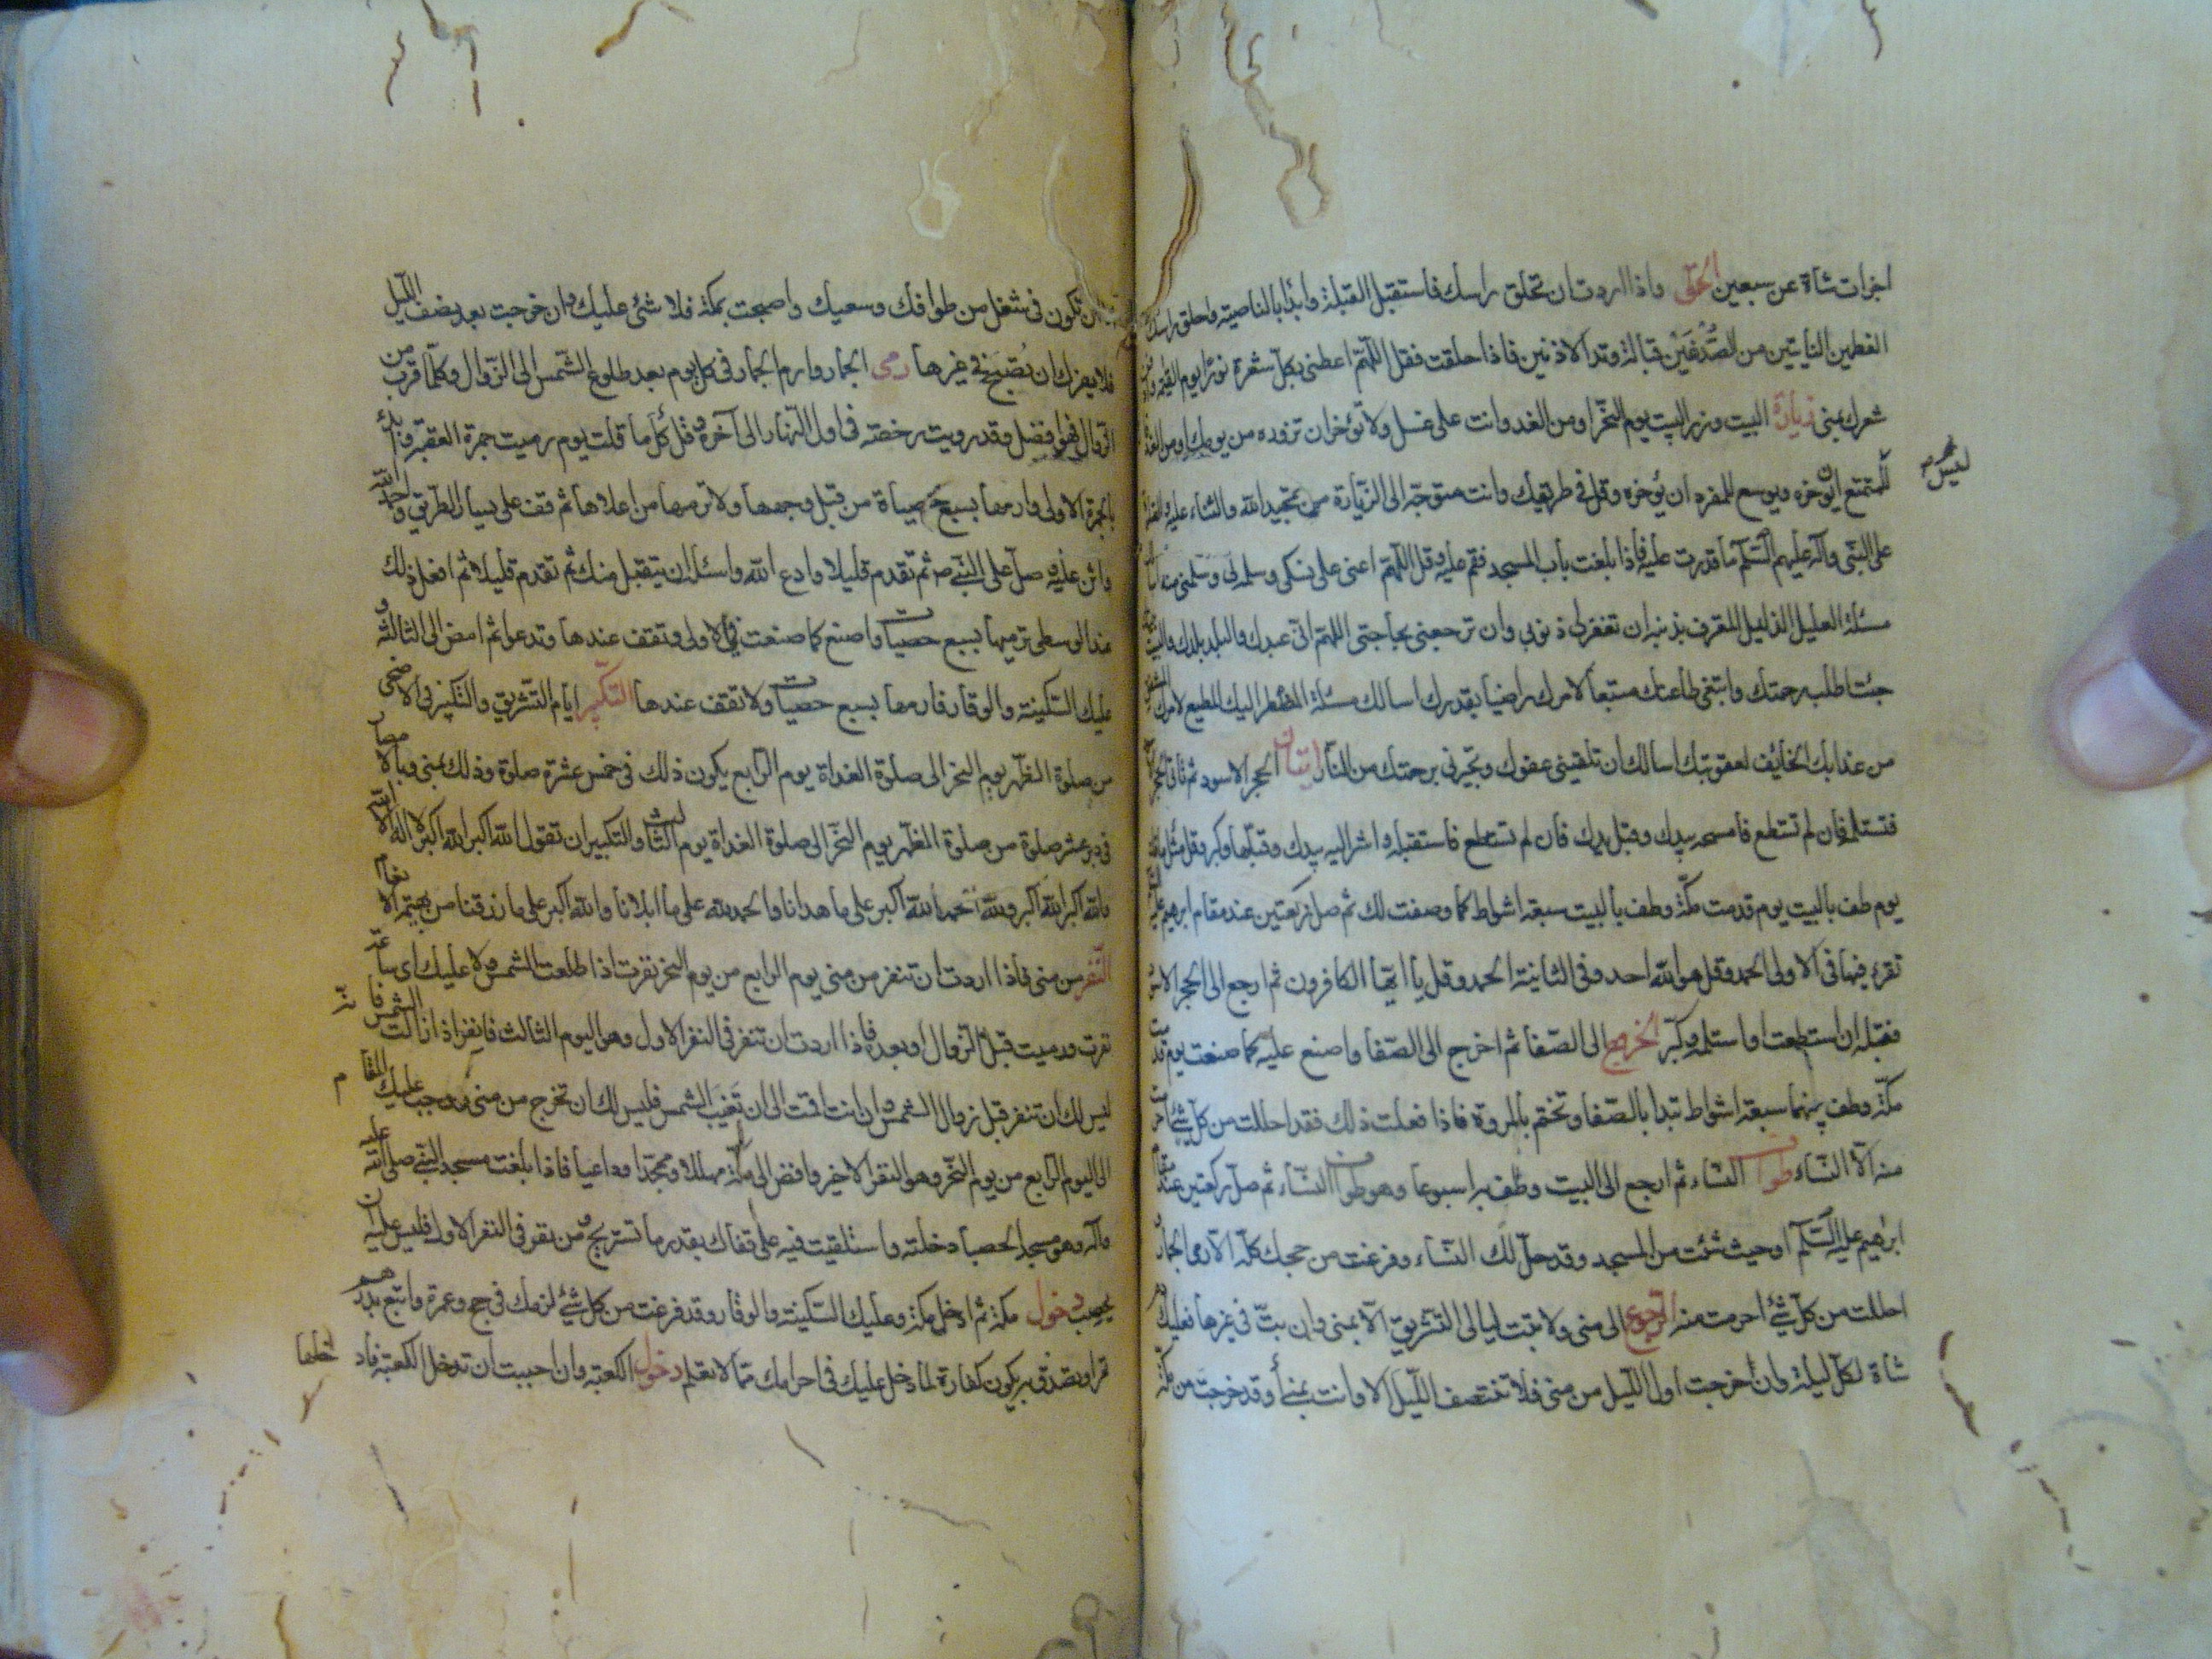 اجزات شاة عن سبعين الحلق واذا اردت ان تحلق راسك فاستقبل القبلة وابدا بالناصية واحلق راسك
العظمين النابتين من الصدغين قبالة وتد الاذنين فاذا حلقت فقل اللهم اعطنى بكل شعرة نورا يوم القيمة
شعرك بمنى زيارة البيت وزر البيت يوم النحر او من الغد وانت على غسل ولا تؤخر ان تزوره من يومك او من الغد
للمتمتع ان يؤخره ويوسع للمفرد ان يؤخره وقل فى طريقك وانت متوجه الى الزيارة من تمجيد الله والثناء عليه
ليس
على النبى وآله عليهم السلم ما قدرت عليه فاذا بلغت باب المسجد فقم عليه وقل اللهم اعنى على نسكى وسلمه لى وسلمنى منه
مسئلة العليل الذليل المعترف بذنبه ان تغفر لى ذنوبى وان ترجعنى بحاجتى اللهم انى عبدك والبلد بلدك والبيت
جئت اطلب رحمتك وابتغى طاعتك متبعا لامرك راضيا بقدرك اسالك مسئلة المضطر اليك المطيع لامرك
من عذابك الخايف لعقوبتك اسالك ان تلقينى عفوك وتجيرنى برحمتك من النار اتيان الحجر الاسود ثم تاتى الحجر
فتستلمه فان لم تستطع فامسحه بيدك وقبل يدك فان لم تستطع فاستقبله واشر اليه بيدك وقبلها وكبر وقل مثل ما قلت
يوم طف بالبيت يوم قدمت مكة وطف بالبيت سبعة اشواط كما وصفت لك ثم صل ركعتين عند مقام ابرهيم عليه
تقرء فيهما فى الاولى الحمد وقل هو الله احد وفى الثانية الحمد وقل يا ايها الكافرون ثم ارجع الى الحجر الاسود
فقبله ان استطعت او استلمه وكبر الخروج الى الصفا ثم اخرج الى الصفا واصنع عليه كما صنعت يوم قدمت
مكة وطف بينهما سبعة اشواط تبدا بالصفا وتختم بالمروة فاذا فعلت ذلك فقد احللت من كل شئ احرمت
منه الا النساء طواف النساء ثم ارجع الى البيت وطف به اسبوعا وهو طواف النساء ثم صل ركعتين عند مقام
ابرهيم عليه السلم او حيث شئت من المسجد وقد حل لك النساء وفرغت من حجك كله الا رمى الجمار
احللت من كل شئ احرمت منه الرجوع الى منى ولا تبت ليالى التشريق الا بمنى وان بت فى غيرها فعليك
شاة لكل ليلة وان خرجت اول الليل من منى فلا تنتصف الليل الا وانت بمنى او قد خرجت من مكة
تكون فى شغل من طوافك وسعيك واصبحت بمكة فلا شئ عليك وان خرجت بعد نصف الليل
فلا يضرك ان تصبح فى غيرها رمى الجمار وارم الجمار فى كل يوم بعد طلوع الشمس الى الزوال وكلما قرب من
الزوال فهو افضل وقد رويت رخصة فى اول النهار الى آخره وقل كل ما قلت يوم رميت جمرة العقبة
بالجمرة الاولى وارمها بسبع حصياة من قبل وجهها ولا ترمها من اعلاها ثم قف على يسار الطريق واحمد الله
واثن عليه وصل على النبى ص ثم تقدم قليلا وادع الله واسئله ان يتقبل منك ثم تقدم قليلا ثم افعل ذلك
عند الوسطى ترميها بسبع حصيات واصنع كما صنعت فى الاولى وتقف عندها وتدعوا ثم امض الى الثالثة و
عليك السكينة والوقار فارمها بسبع حصيات ولا تقف عندها التكبير ايام التشريق والتكبير فى الاضحى
من صلوة الظهر يوم النحر الى صلوة الغداة يوم الرابع يكون ذلك فى خمس عشرة صلوة وذلك بمنى وبالامصار
فى دبر عشر صلوة من صلوة الظهر يوم النحر الى صلوة الغداة يوم الثالث والتكبير ان تقول الله اكبر الله اكبر لا اله الا الله
والله اكبر الله اكبر ولله الحمد الله اكبر على ما هدانا والحمد لله على ما ابلانا والله اكبر على ما رزقنا من بهيمة الانعام
النفر من منى فاذا اردت ان تنفر من منى يوم الرابع من يوم النحر نفرت اذا طلعت الشمس ولا عليك اى ساعة
نفرت ورميت قبل الزوال او بعده فاذا اردت ان تنفر فى النفر الاول وهو اليوم الثالث فانفر اذا زالت الشمس
ليس لك ان تنفر قبل زوال الشمس وان انت اقمت الى ان تغيب الشمس فليس لك ان تخرج من منى ووجب عليك المقام
الى اليوم الرابع من يوم النحر وهو النفر الاخير وافض الى مكة مهللا وممجدا وداعيا فاذا بلغت مسجد النبى صلى الله عليه
وآله وهو مسجد الحصبا دخلته واستلقيت فيه على قفاك بقدر ما تستريح ومن نفر فى النفر الاول فليس عليه ان
يحصب دخول مكة ثم ادخل مكة وعليك السكينة والوقار وقد فرغت من كل شئ لزمك فى حج وعمرة وابتع بدرهم
تمرا وتصدق به يكون كفارة لما دخل عليك فى احرامك مما لا تعلم دخول الكعبة وان احببت ان تدخل الكعبة فاد
خلها